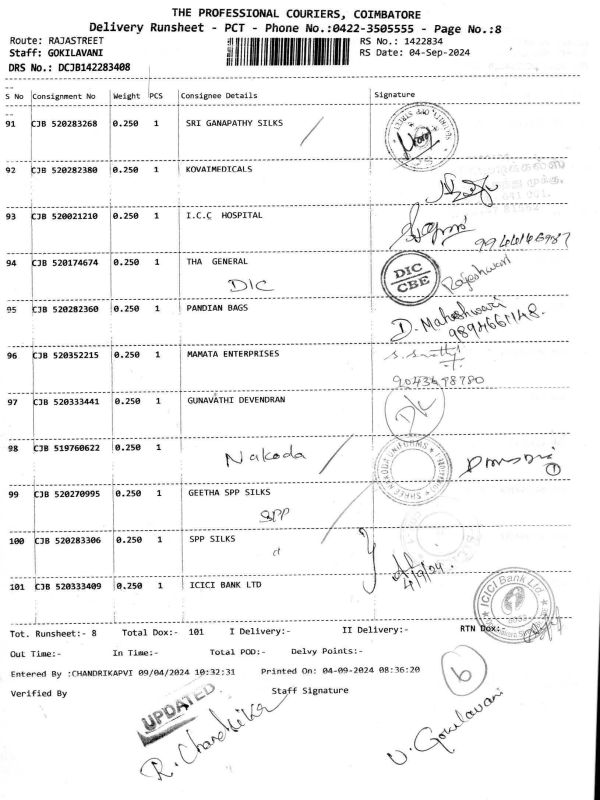 THE PROFESSIONAL COURIERS, COIMBATORE
Delivery Runsheet - PCT - Phone No.:0422-3505555 - Page No.:8
Route: RAJASTREET RS No.: 1422834
Staff: GOKILAVANI RS Date: 04-Sep-2024
DRS No.: DCJB142283408
S No Consignment No Weight PCS Consignee Details Signature
91 CJB 520283268 0.250 1 SRI GANAPATHY SILKS
92 CJB 520282380 0.250 1 KOVAIMEDICALS
93 CJB 520021210 0.250 1 I.C.C HOSPITAL
94 CJB 520174674 0.250 1 THA GENERAL
DIC DIC CBE Rajeshwari
95 CJB 520282360 0.250 1 PANDIAN BAGS
D. Maheshwari
96 CJB 520352215 0.250 1 MAMATA ENTERPRISES
97 CJB 520333441 0.250 1 GUNAVATHI DEVENDRAN
D/L
98 CJB 519760622 0.250 1
Nakoda
99 CJB 520270995 0.250 1 GEETHA SPP SILKS
SPP
100 CJB 520283306 0.250 1 SPP SILKS
4/9/24.
101 CJB 520333409 0.250 1 ICICI BANK LTD
ICICI Bank Ltd
Tot. Runsheet:- 8 Total Dox:- 101 I Delivery:- II Delivery:- RTN Dox:-
Out Time:- In Time:- Total POD:- Delvy Points:-
Entered By :CHANDRIKAPVI 09/04/2024 10:32:31 Printed On: 04-09-2024 08:36:20
Verified By Staff Signature
6
UPDATED
R. Chandrika
V. Gokilavani